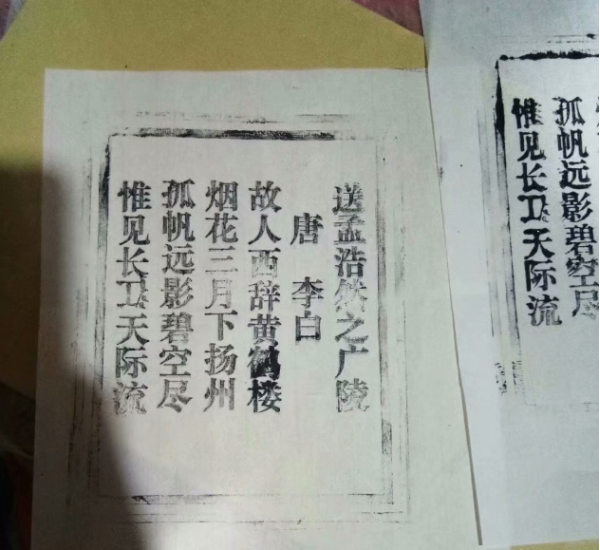 送孟浩然之广陵
唐 李白
故人西辞黄鹤楼
烟花三月下扬州
孤帆远影碧空尽
惟见长江天际流
孤帆远影碧空尽
惟见长江天际流